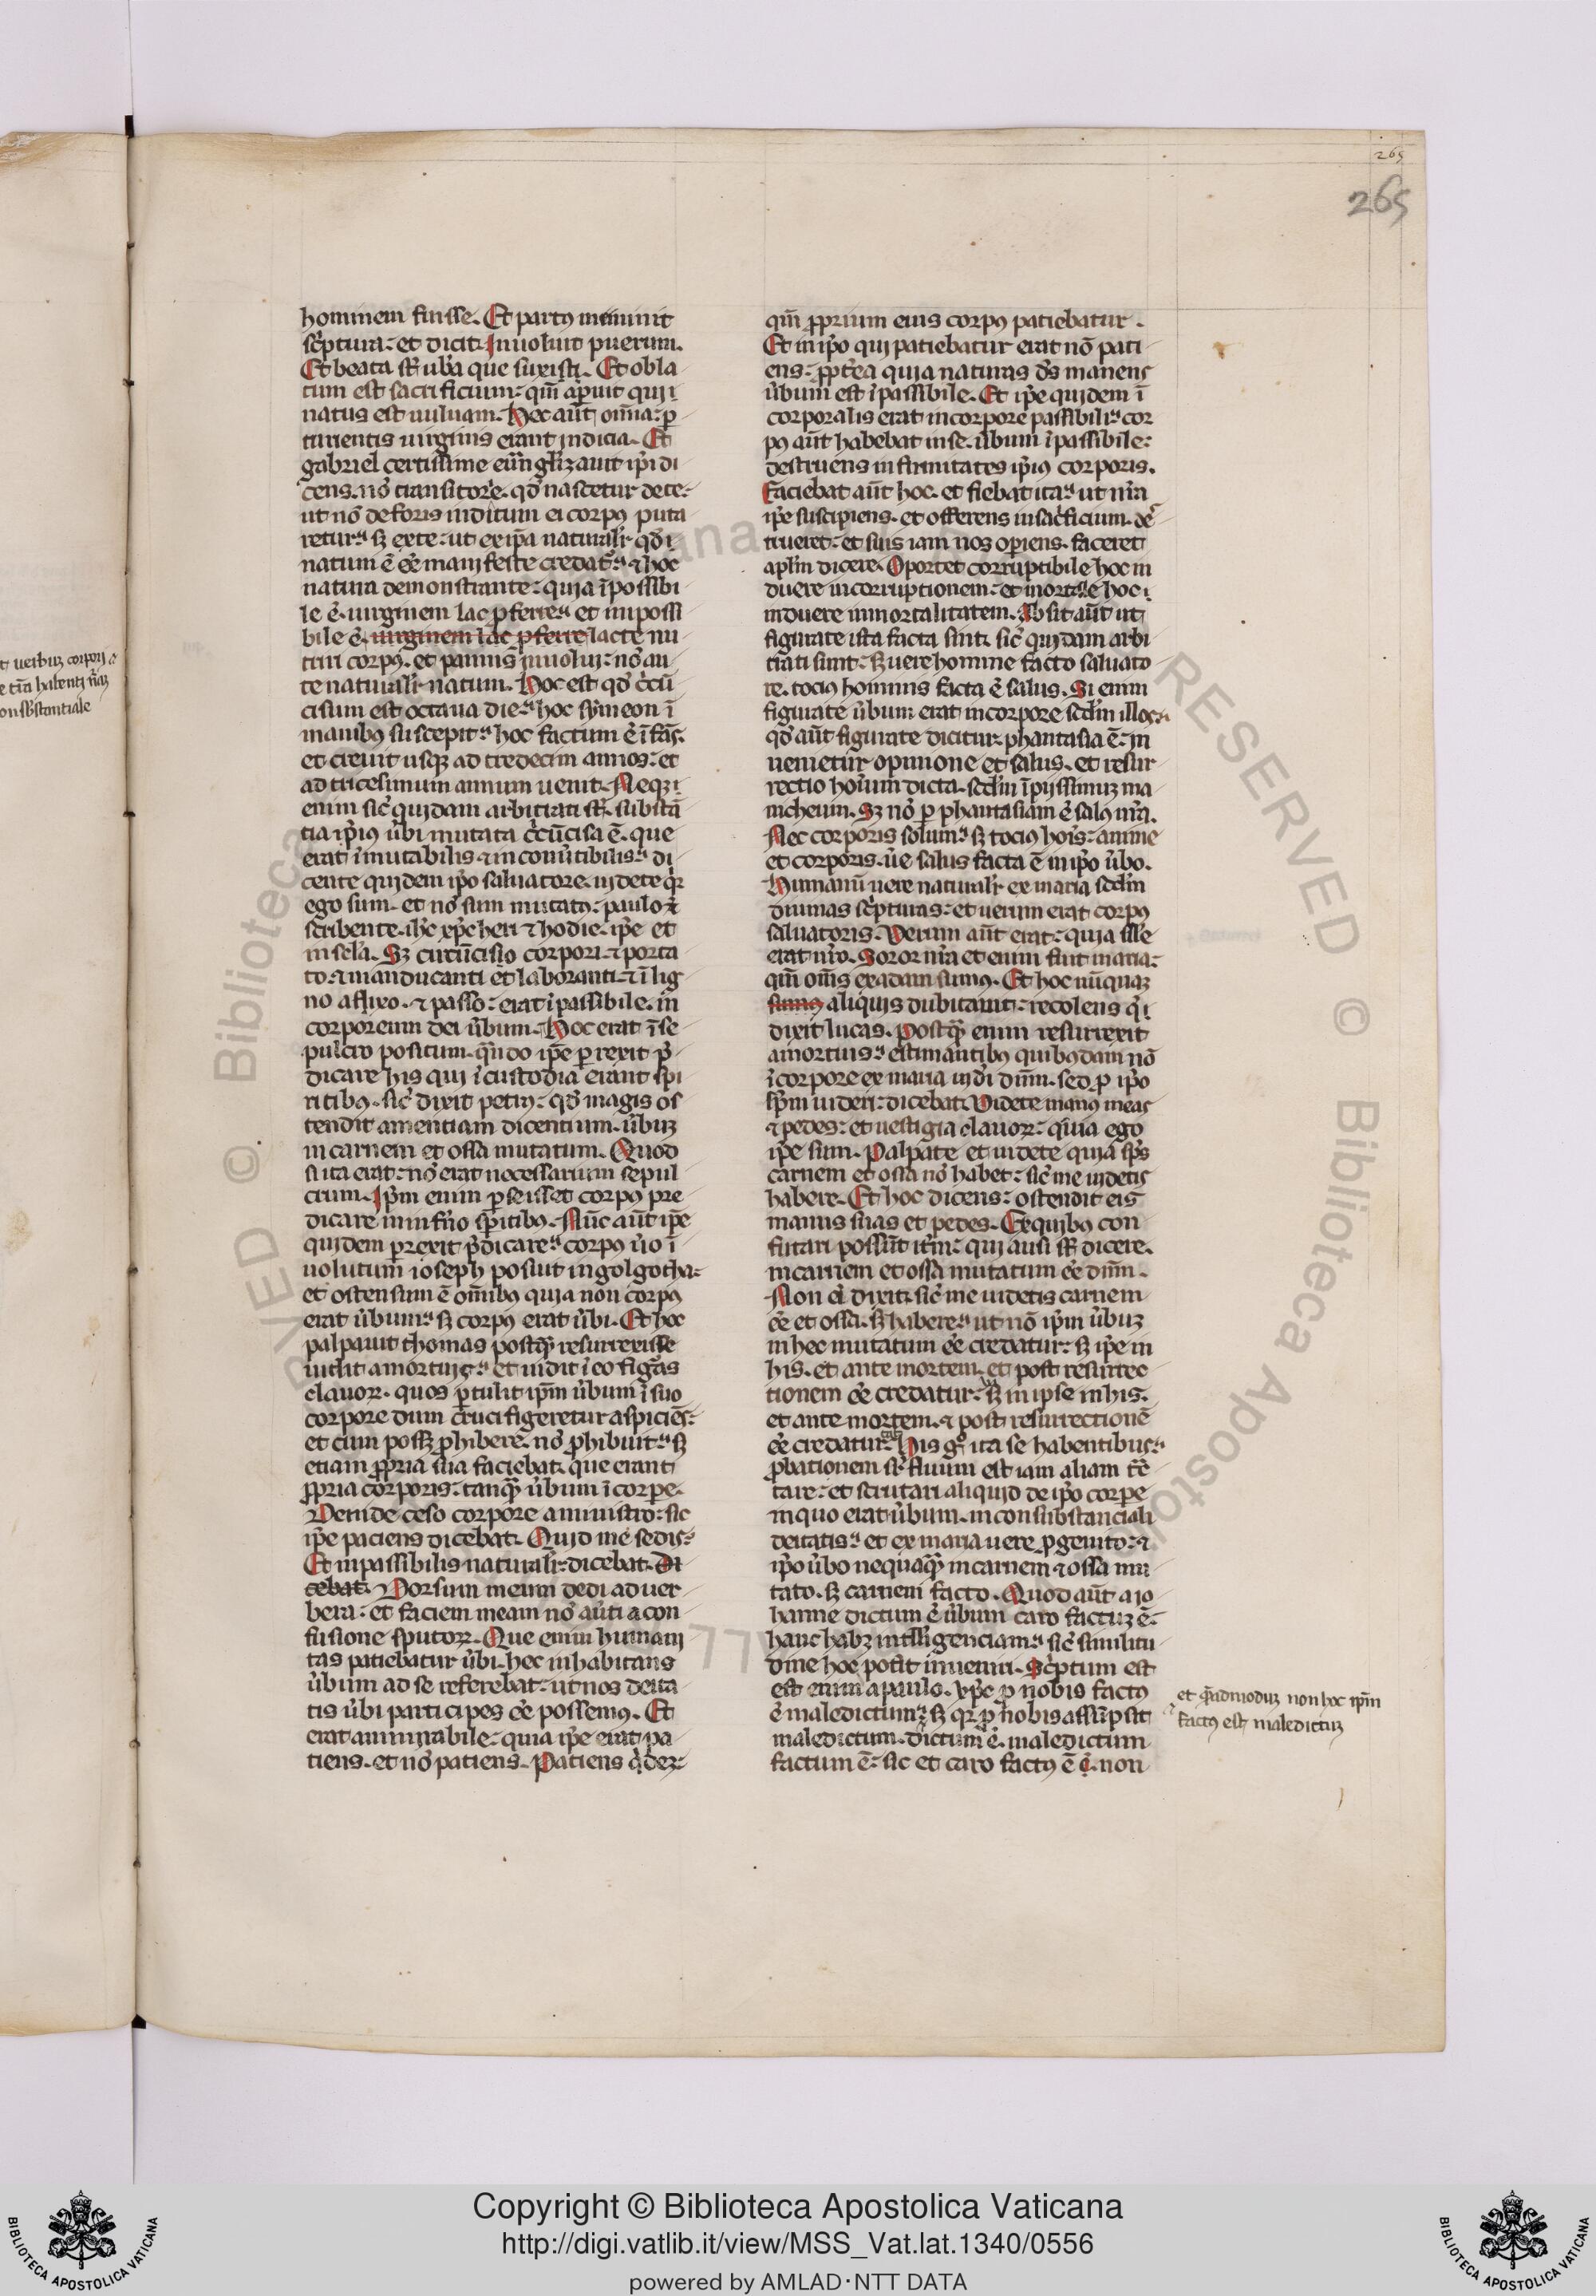 265
265
hominem fuisse. Et partꝰ meminit
sc̓ptura: et dicit. Inuoluit puerum.
Et beata sūt ub̓a que suxisti. Et obla
tum est sacrificium: qm̄ ap̓uit qui
natus est uuluam. Hec aūt om̄ia: ꝑ
turientis uirginis erant indicia. Et
gabriel certissime euāgl̓izauit ip̓i di
cens. nō transitor̓e. qd̓ nascetur de te:
ut nō deforis inditum ei corpꝰ puta
retur: sꝫ ex te: ut ex ip̄a natural̓r qd̓
natum ē eē manifeste credat᷑: ⁊ hoc
natura demonstrante: quia īpossibi
le ē. uirginem lac ꝓferre: et impossi
bile ē. uirginem lac ꝓferre lacte nu
triri corpꝰ. et pannis inuolui: nō an
te natural̓r natum. Hoc est qd̓ c̓cū
cisum est octaua die: hoc symeon ī
manibꝰ suscepit: hoc factum ē īfās.
et creuit usqꝫ ad tredecim annos: et
ad tricesimum annum uenit. Neqꝫ
enim sic̓ quidam arbitrati sūt. substā
tia ip̓ius ūbi mutata c̓cūcisa ē. que
erat īmutabilis ⁊ inconūtibilis: di
cente quidem ip̓o saluatore. uidete qr̓
ego sum. et nō sum mutatꝰ: paulo ū
scribente. ih̓c xp̓c heri ⁊ hodie. ip̓e et
in sc̄la. Sꝫ circūcisio corpori ⁊ porta
to. ⁊ manducanti et laboranti. ⁊ ī lig
no affixo. ⁊ passo: erat īpassibile. in
corporeum dei ūbum. Hoc erat ī se
pulcro positum. qn̄do ip̓e ꝑrexit p̄
dicare his qui ī custodia erant spi
ritibꝰ. sic̓ dixit petrꝰ: qd̓ magis os
tendit amentiam dicentium. ūbuꝫ
in carnem et ossa mutatum. Quod
si ita erat: nō erat necessarium sepul
crum. Ip̄m enim ꝑ se isset corpꝰ pre
dicare in inf̓no sp̄itibꝰ. Nūc aūt ip̓e
quidem ꝑrexit p̄dicare: corpꝰ ūo ī
uolutum ioseph posuit in golgotha:
et ostensum ē om̄ibꝰ quia non corpꝰ
erat ūbum: sꝫ corpꝰ erat ūbi. Et hoc
palpauit thomas postq̄ resurrexisse
uidit a mortuis: et uidit ī eo figᷓas
clauoꝝ. quos ꝑtulit ip̄m ūbum ī suo
corpore dum crucifigeretur aspiciēs:
et cum possꝫ ꝓhibere. nō ꝓhibuit: sꝫ
etiam ꝓpria sua faciebat. que erant
ꝓpria corporis: tanq̄ ūbum ī corpe.
Deinde ceso corpore a ministro: sic
ip̓e paciens dicebat. Quid me cedis:
Et inpassibilis natural̓r: dicebat. Di
cebat. Dorsum meum dedi ad uer
bera: et faciem meam nō aūti a con
fusione sputoꝝ. Que enim humani
tas patiebatur ūbi. hec inhabitans
ūbum ad se referebat: ut nos deita
tis ūbi participes eē possemꝰ. Et
erat ammirabile: quia ip̓e erat pa
tiens. et nō patiens. Patiens q̓deꝫ:
qm̄ ꝓprium eius corpꝰ patiebatur.
Et in ip̓o qui patiebatur erat nō pati
ens: ꝓpt̓ea quia naturas d̄s manens
ūbum est īpassibile. Et ip̓e quidem ī
corporalis erat in corpore passibili: cor
pꝰ aūt habebat in se. ūbum īpassibile:
destruens infirmitates ip̓iꝰ corporis.
Faciebat aūt hoc. et fiebat ita: ut nr̄a
ip̓e suscipiens. et offerens in sac̓ficium. de
strueret: et suis iam nos op̓iens. faceret
apl̓m dicere. Oportet corruptibile hoc in
duere incorruptionem: et mortale hoc
induere inmortalitatem. Absit aūt ut
figurate ista facta sint. sic̓ quidam arbi
trati sunt: Sꝫ uere homine facto saluato
re. tociꝰ hominis facta ē salus. Si enim
figurate ūbum erat in corpore scd̓m illos:
qd̓ aūt figurate dicitur. phantasia ē: in
uenietur opinione et salus. et resur
rectio hoīum dicta. scd̓m īpiissimuꝫ ma
nicheum. Sꝫ nō ꝑ phantasiam ē salꝰ nr̄a.
Nec corporis solum: sꝫ tociꝰ hoīs: anime
et corporis. ūe salus facta ē in ip̓o ūbo.
Humanū uere natural̓r ex maria scd̓m
diuinas sc̓pturas: et uerum erat corpꝰ
saluatoris. Verum aūt erat: quia ille
erat nr̄o. Soror nr̄a et enim fuit maria:
qm̄ om̄s ex adam sumꝰ. Et hoc nūquaꝫ
sumꝰ aliquis dubitauit: recolens q̓
dixit lucas. Postq̄ enim resurrexit
a mortuis: estimantibꝰ quibꝰdam nō
ī corpore ex maria uid̓i dn̄m. sed ꝓ ip̓o
sp̄m uideri: dicebat. Videte manꝰ meas
⁊ pedes: et uestigia clauoꝝ: quia ego
ip̓e sum. Palpate et uidete quia sp̄s
carnem et ossa nō habet: sic̓ me uidetis
habere. Et hoc dicens: ostendit eis
manus suas et pedes. Ex quibꝰ con
futari possūt it̓m: qui ausi sūt dicere.
in carnem et ossa mutatum eē dn̄m.
Non ei dixit. sic̓ me uidetis carnem
eē et ossa. sꝫ habere: ut nō ip̄m ūbuꝫ
in hec mutatum eē credatur: sꝫ ip̓e in
his. et ante mortem. et post resurrec
tionem eē credatur: sꝫ in ipse in his.
et ante mortem. ⁊ post resurrectionē
eē credatur. His gͦ ita se habentibus:
ꝓbationem suꝑfluum est iam aliam tē
tare: et scrutari aliquid de ip̓o corpe
in quo erat ūbum. inconsubstanciali
deitatis: et ex maria uere ꝓgenito: ⁊
ip̓o ūbo nequaq̄ in carnem ⁊ ossa mu
tato. sꝫ carnem facto. Quod aūt a io
hanne dictum ē ūbum caro factuꝫ ē:
hanc habꝫ intelligenciam: sic̓ similitu
dine hoc potīt inueniri. Sc̓ptum est
est enim a paulo. xp̓c ꝓ nobis factꝰ
ē maledictum: sꝫ qr̓ ꝓ nobis assūpsit
maledictum. dictum ē. maledictum
factum ē: sic et caro factꝰ ē. non
et q̄admoduꝫ non hoc ip̄m
factꝰ est maledictuꝫ
Copyright © Biblioteca Apostolica Vaticana
http://digi.vatlib.it/view/MSS_Vat.lat.1340/0556
powered by AMLAD·NTT DATA
BIBLIOTECA APOSTOLICA VATICANA
BIBLIOTECA APOSTOLICA VATICANA